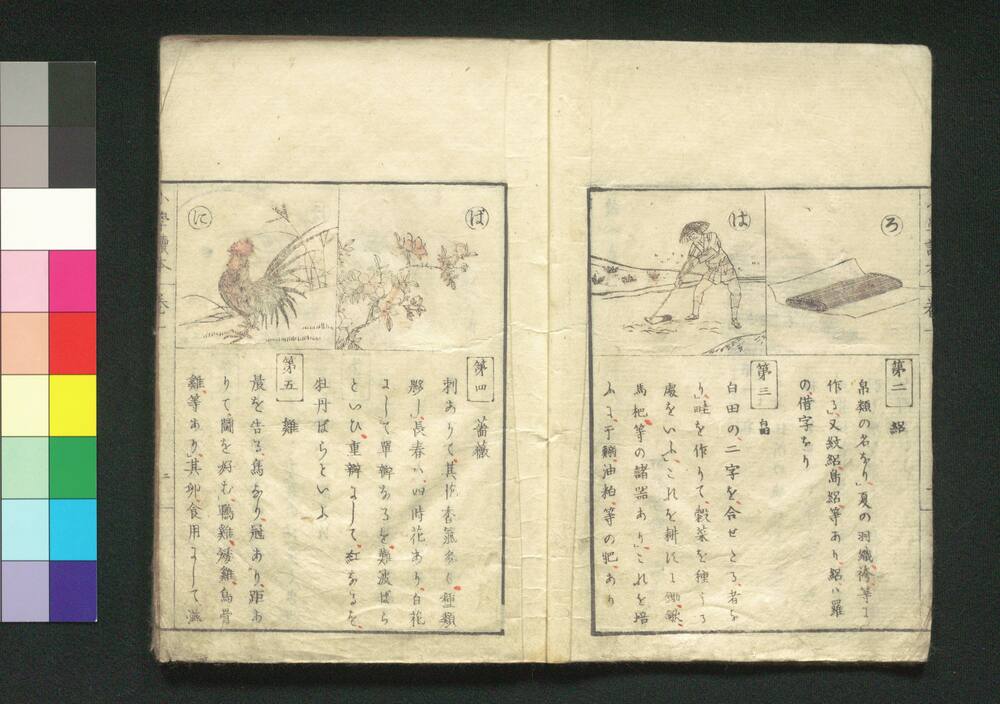 ろ
第二 絽
帛類の名なり」夏の羽織、袴、等に
作る」又紋絽、島絽、等あり、絽ハ羅
の、借字なり
は
第三 畠
白田の、二字を、合せたる、者な
り」畦を作りて、穀菜を種うる
處をいふ」これを耕すに、鋤、鍬、
馬杷、等の諸器あり」これを培
ふに、干鰯、油粕、等の肥、あり
ば
第四 薔薇
刺ありて、其花、香氣多し、種類
夥し」長春ハ、四時花あり、白花
にして單瓣なるを、難波ばら
といひ、重瓣にして、紅なるを、
牡丹ばらといふ
に
第五 雞
晨を告る、鳥なり、冠あり、距あ
りて、鬭を好む」鴨雞、矮雞、烏骨
雞、等あり」其卵、食用にして、滋